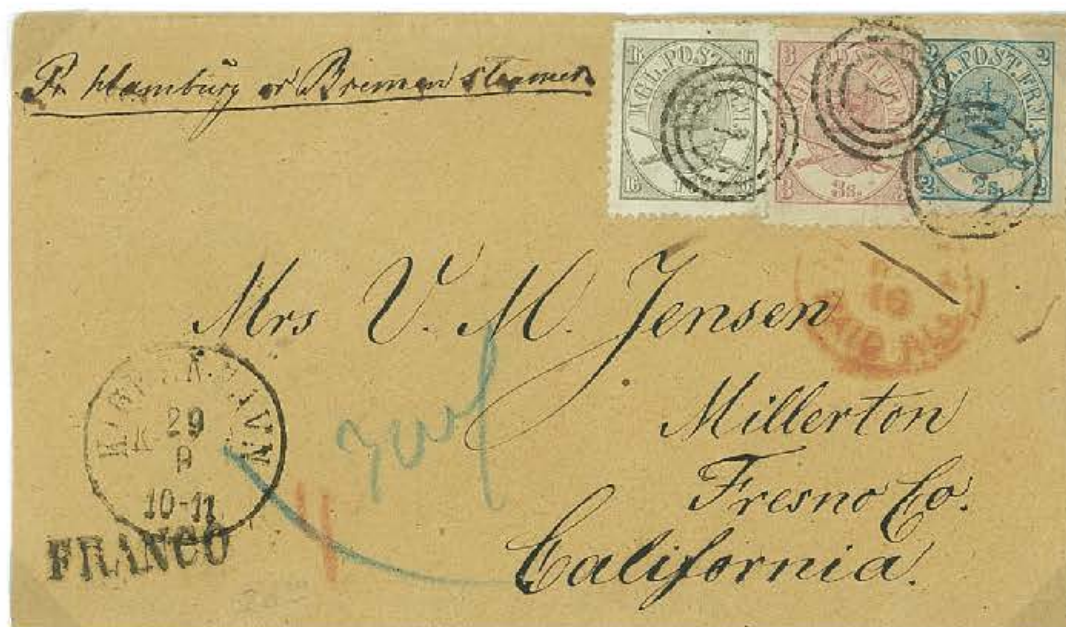 Pr Hamburg or Bremen steamer
16 16
KGL. POST. FRM.
16 16
3
3 3s.
2 2
POST. FRM.
2 2s. 2
16
PAID ALL
Mrs V. M. Jensen
Millerton
Fresno Co.
California.
KIØBENHAVN
K
29
9
10-11
FRANCO